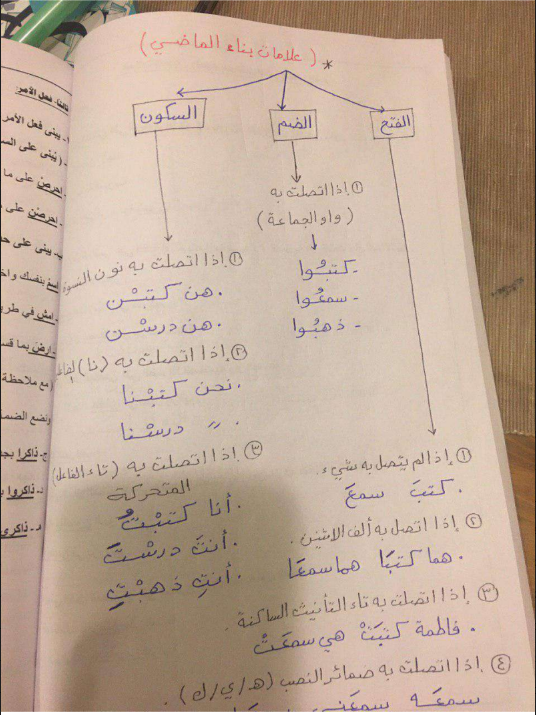 * (علامات بناء الماضي)
الفتح
الضم
السكون
① إذا اتصلت به
(واو الجماعة)
- كتبُوا
- سمعُوا
- ذهبُوا
① إذا اتصلت به نون النسوة
. هن كتبْن
. هن درسْن
② إذا اتصلت به (نا) الفاعل
. نحن كتبْنا
. " درسْنا
③ إذا اتصلت به (تاء الفاعل)
المتحركة
. أنا كتبْتُ
. أنتَ درسْتَ
. أنتِ ذهبْتِ
① إذا لم يتصل به شيء.
. كتبَ سمعَ
② إذا اتصل به ألف الاثنين.
. هما كتبَا هما سمعَا
③ إذا اتصلت به تاء التأنيث الساكنة.
. فاطمة كتبَتْ هي سمعَتْ
④ إذا اتصلت به ضمائر النصب (ه/ي/ك).
سمعَه
ثالثا- فعل الأمر
- يبنى فعل الأمر
- (يبنى على
- احرص على ما
- احرصْن على
- يبنى على حذ
بنفسك واخ
- امش في طر
- ارض بما قس
(مع ملاحظة
ونضع الضم
ج- ذاكرا بجد
د- ذاكروا
هـ- ذاكري